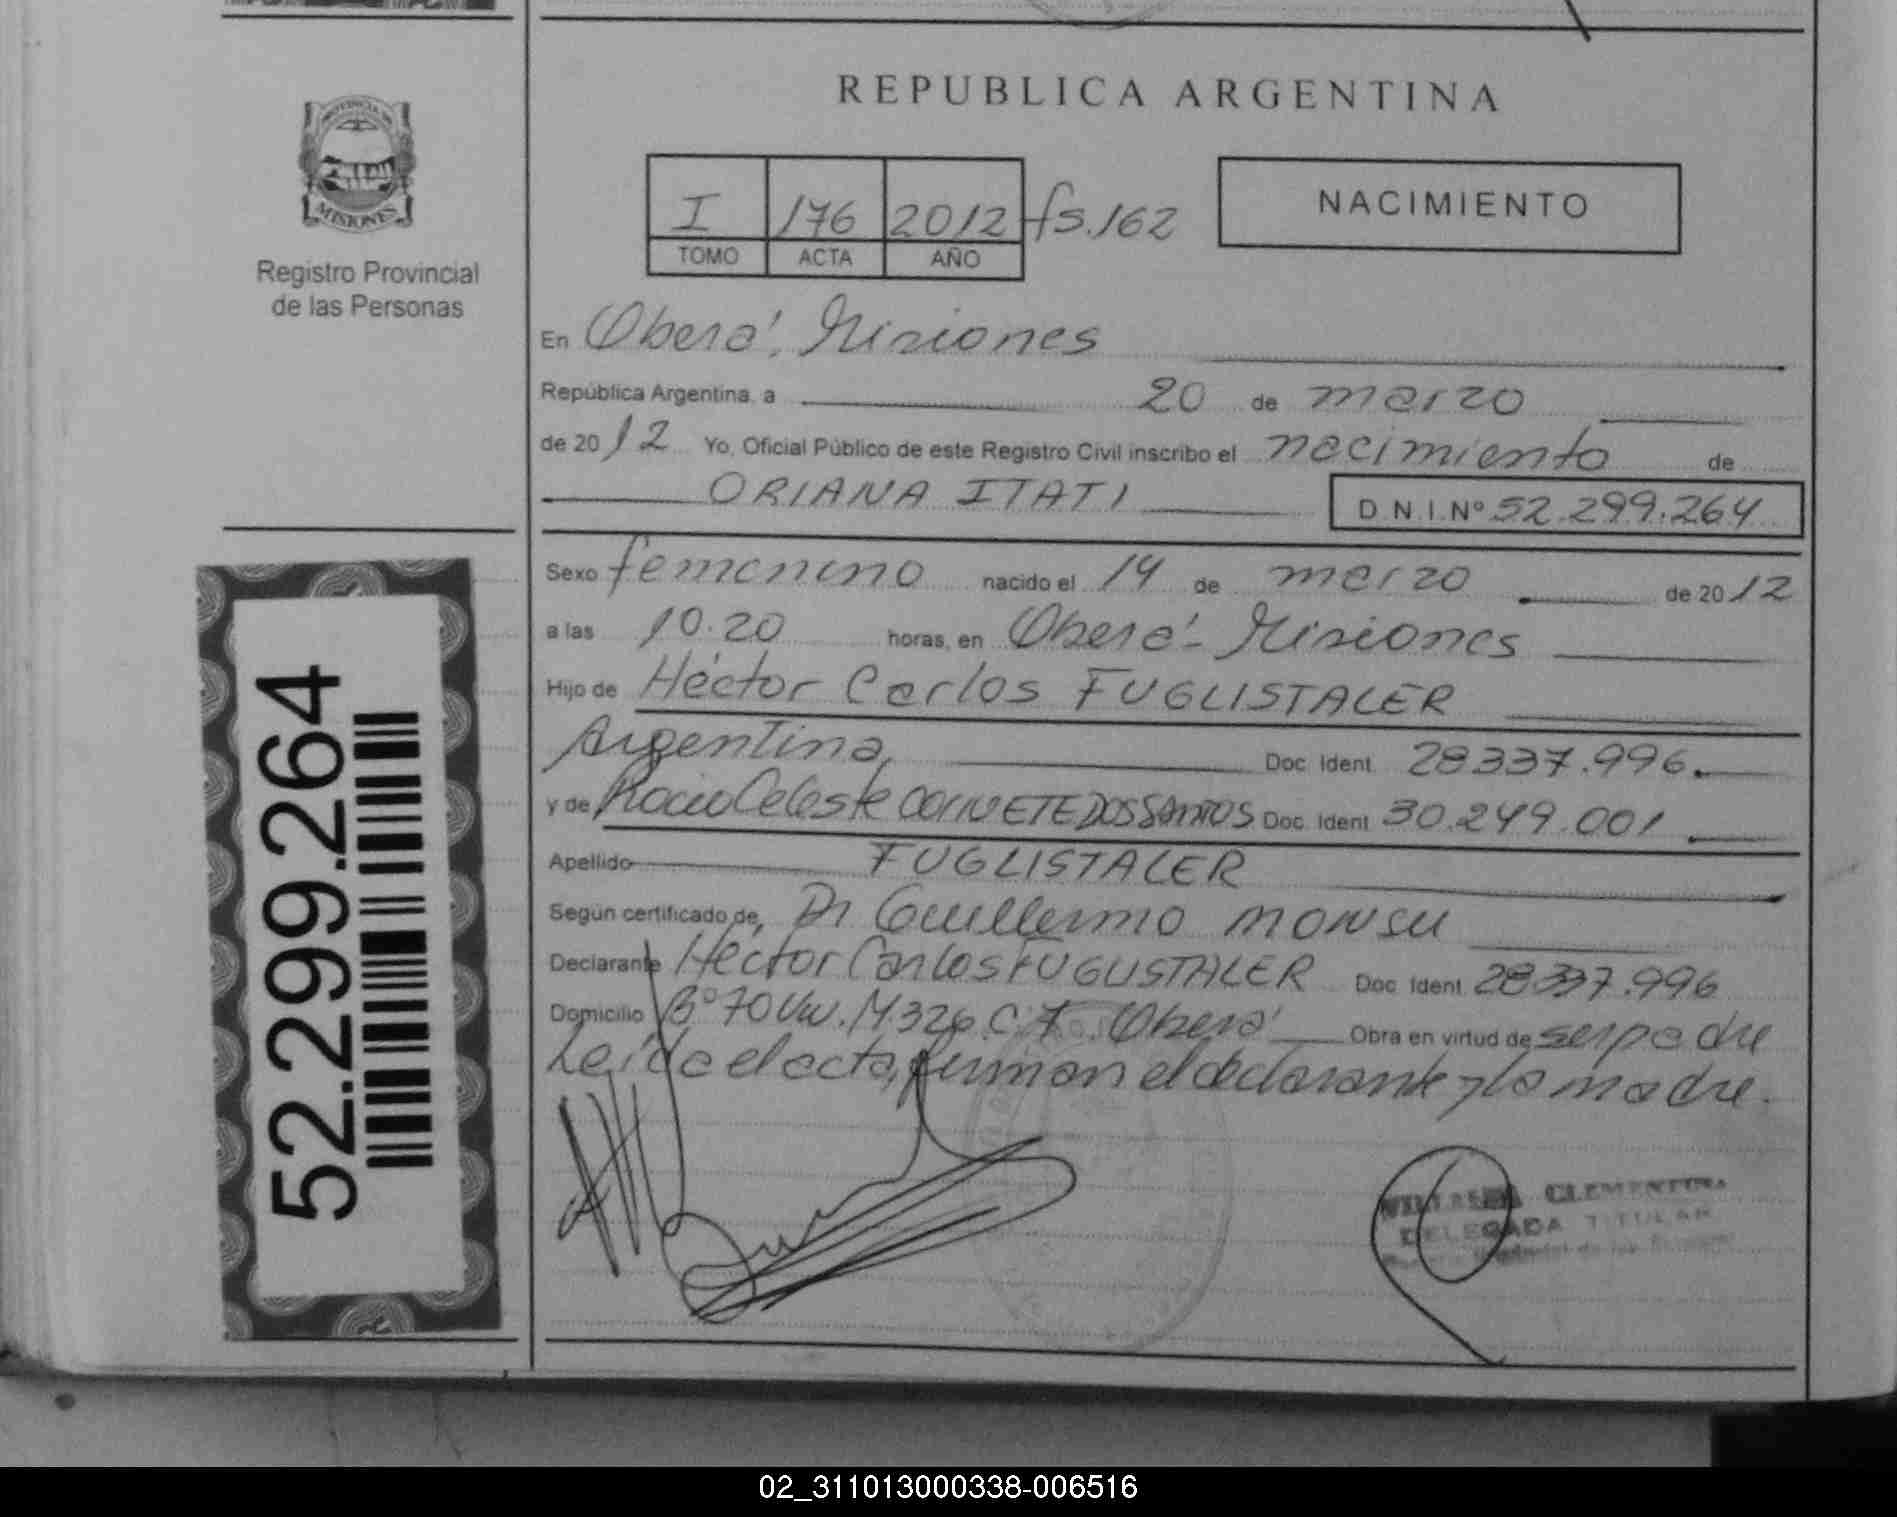 REPUBLICA ARGENTINA
PROVINCIA DE
MISIONES
Registro Provincial
de las Personas
I 176 2012 fs.162
TOMO ACTA AÑO
NACIMIENTO
En Oberá, Misiones
República Argentina, a 20 de marzo
de 2012 Yo, Oficial Público de este Registro Civil inscribo el nacimiento de
ORIANA ITATI D.N.I.Nº 52.299.264
Sexo femenino nacido el 14 de marzo de 2012
a las 10.20 horas, en Oberá - Misiones
Hijo de Héctor Carlos FUGLISTALER
Argentina, Doc. Ident. 28337.996.
y de Rocio Celeste DOS SANTOS Doc. Ident. 30.249.001
Apellido FUGLISTALER
Según certificado de, Dr Guillermo MONSU
Declarante Héctor Carlos FUGLISTALER Doc. Ident. 28337.996
Domicilio Bº 70 Viv. M.326 C.7. Oberá Obra en virtud de ser padre
Leída el acta, firman el declarante y la madre.
CLEMENTINA
DELEGADA TITULAR
52.299.264
02_311013000338-006516